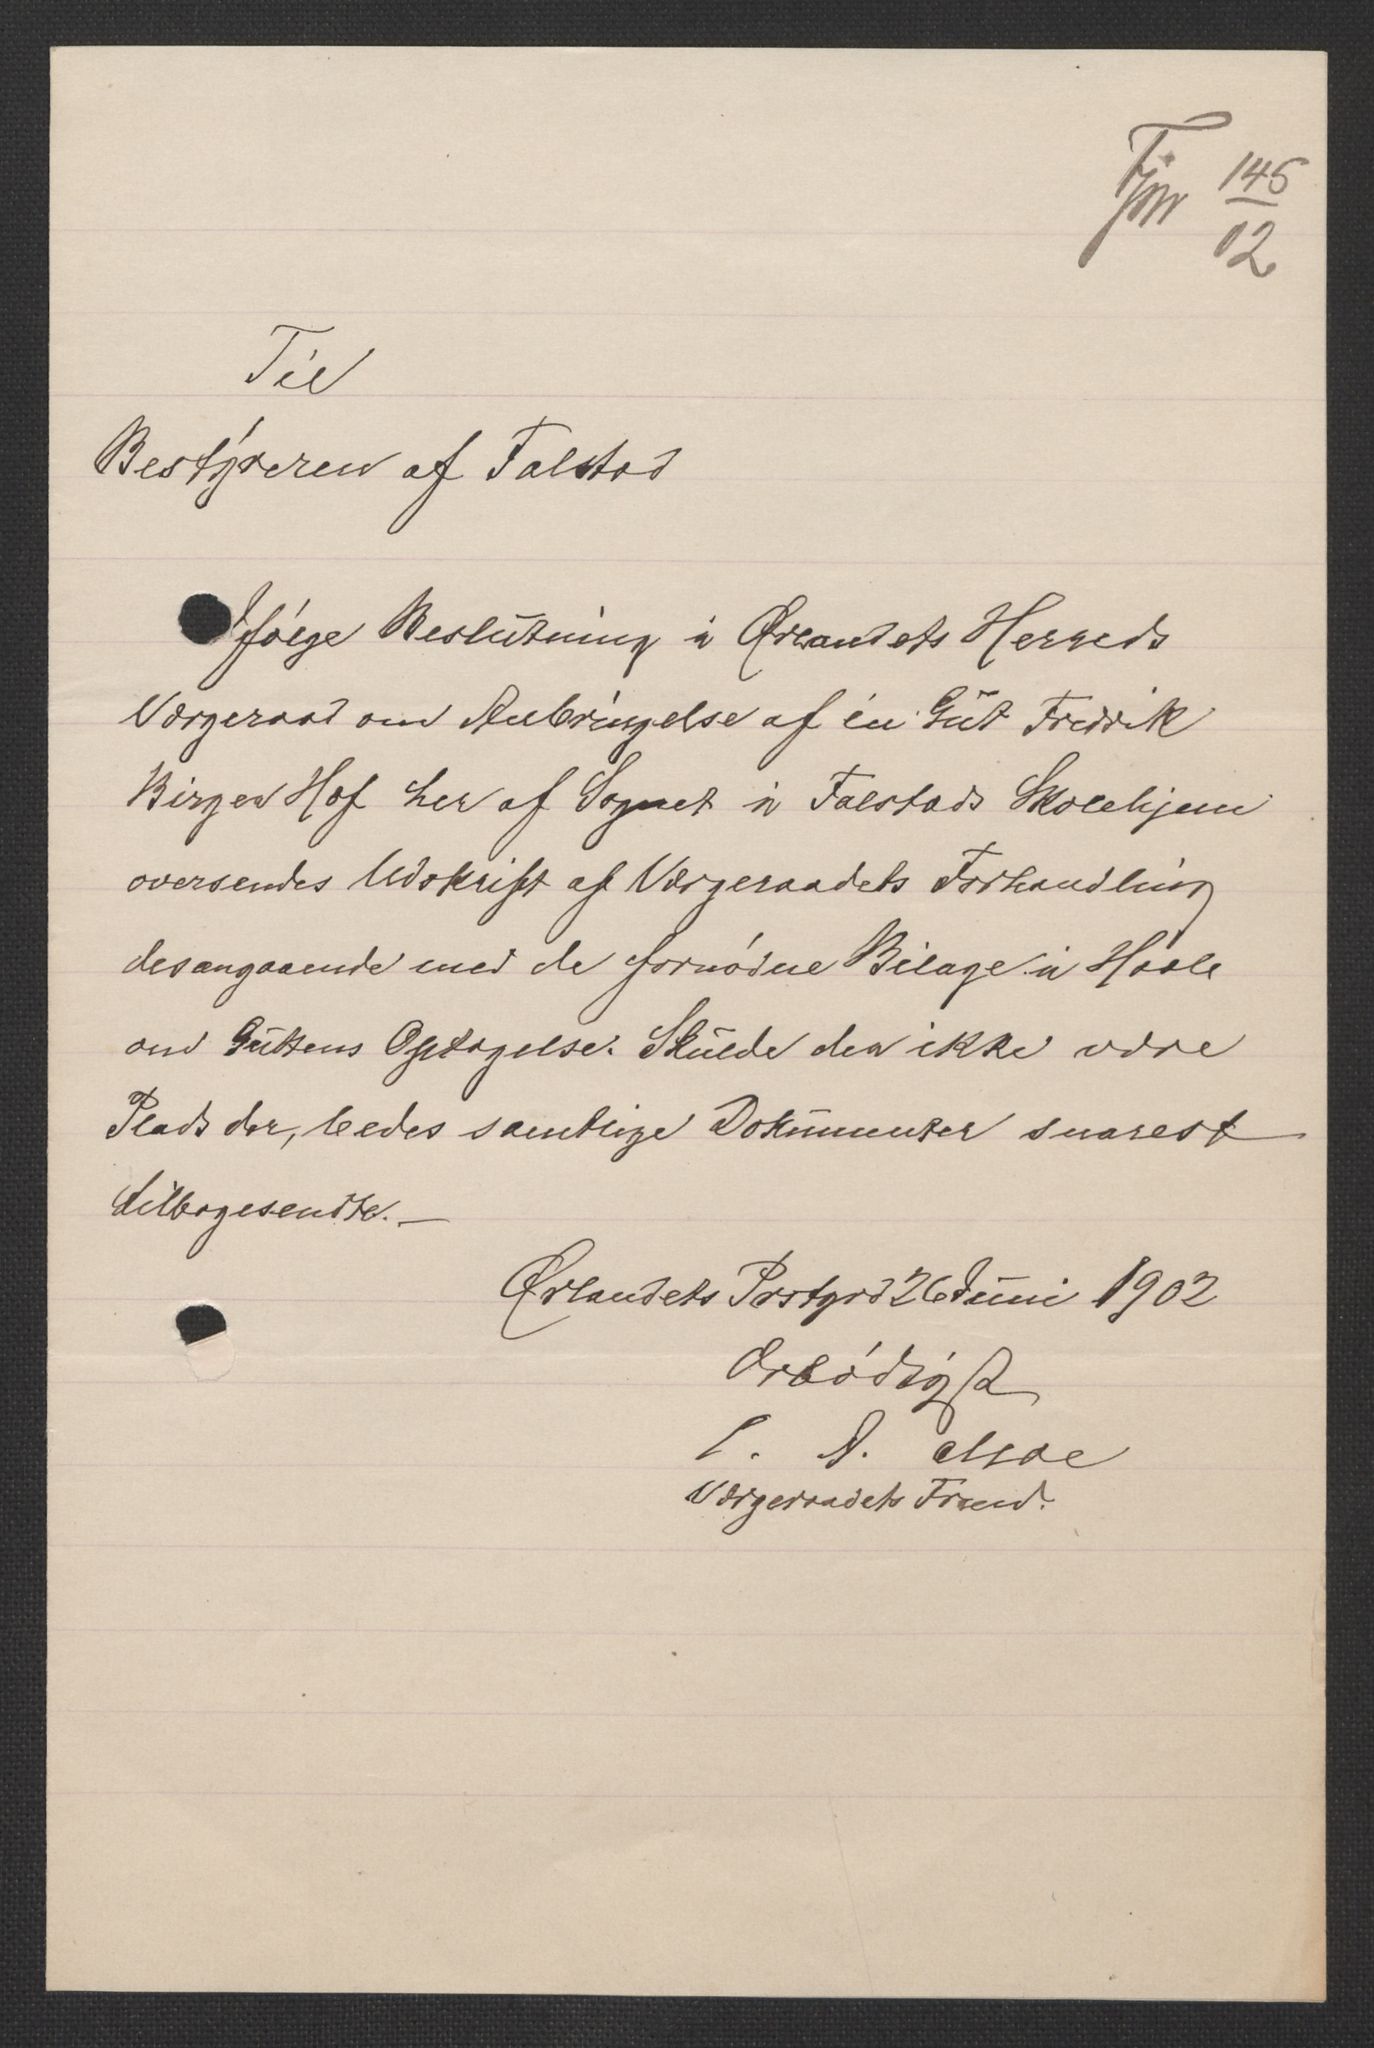 Fjor 145
02
Til
Bestyreren af Falstad
Ifølge Beslutning i Ørlandets Herreds
Værgeraad om Anbringelse af en Gut Fredrik
Birger Hof her af Sognet i Falstads Skolehjem
oversendes Udskrift af Værgeraadets Forhandling
desangaaende med de fornødne Bilage i Haab
om Guttens Optagelse. Skulde der ikke være
Plads der, bedes samtlige Dokumenter snarest
tilbagesendte. —
Ørlandets Prstgrd 26 Juni 1902
Ærbødigst
C. A. Moe
Værgeraadets Frmd.